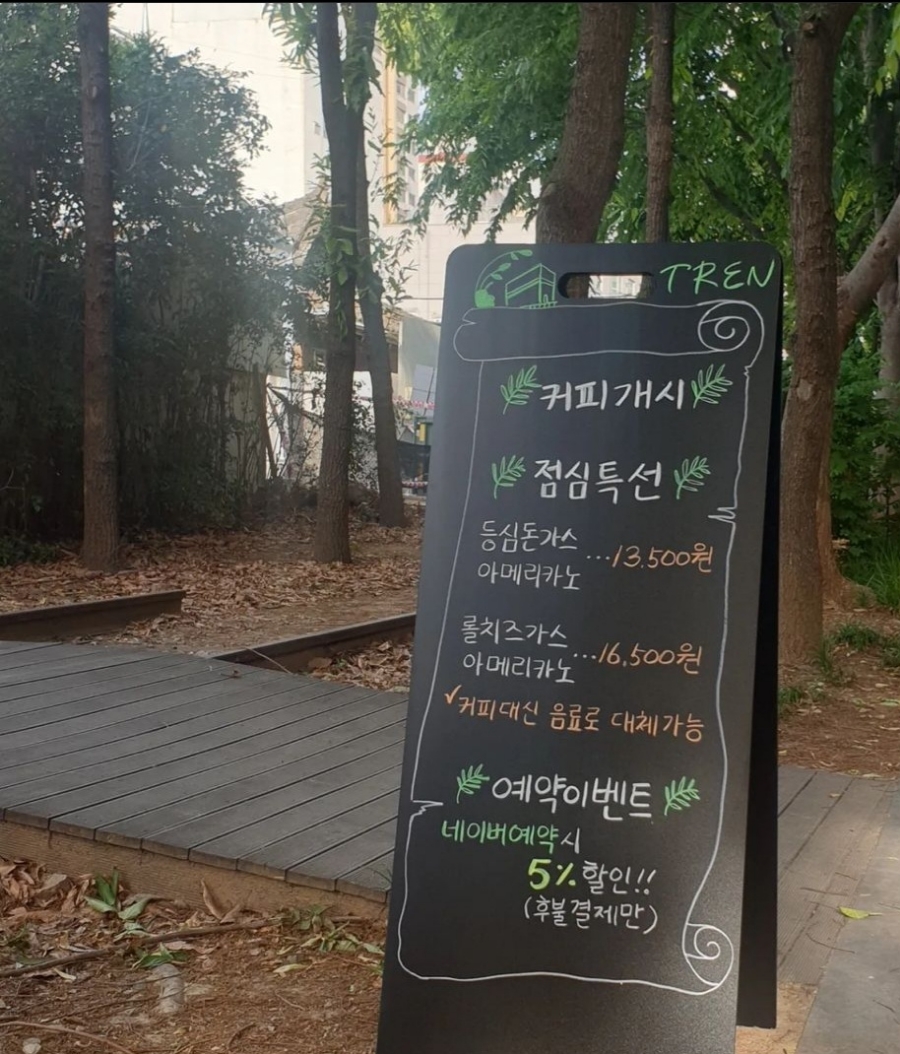 TREN
커피개시
점심특선
등심돈가스
아메리카노 ...13,500원
롤치즈가스
아메리카노 ...16,500원
✓커피대신 음료로 대체가능
예약이벤트
네이버예약시
5% 할인!!
(후불결제만)